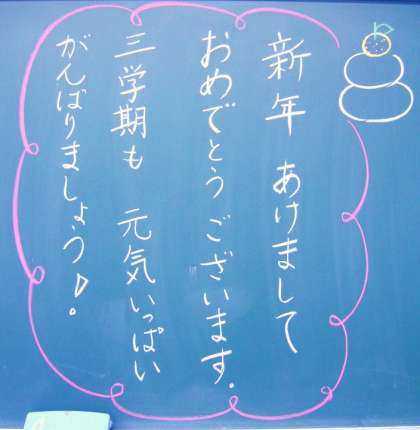 新年 あけまして
おめでとうございます。
三学期も 元気いっぱい
がんばりましょう！。